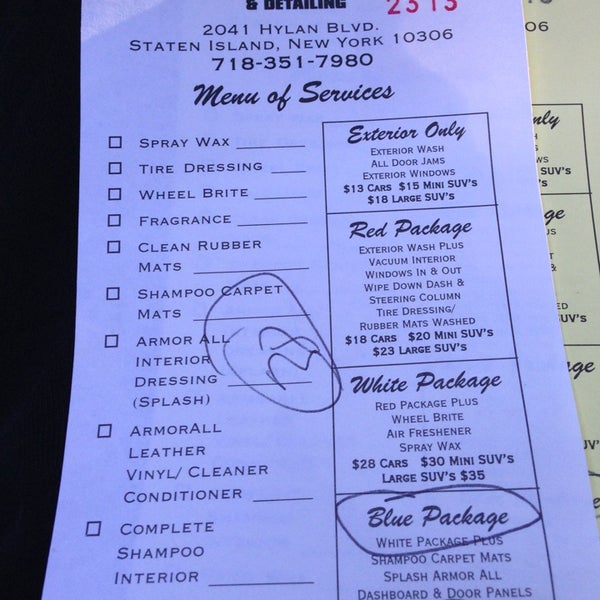 & DETAILING
2313
2041 HYLAN BLVD.
STATEN ISLAND, NEW YORK 10306
718-351-7980
Menu of Services
SPRAY WAX
TIRE DRESSING
WHEEL BRITE
FRAGRANCE
CLEAN RUBBER
MATS
SHAMPOO CARPET
MATS
ARMOR ALL
INTERIOR
DRESSING
(SPLASH)
ARMORALL
LEATHER
VINYL/ CLEANER
CONDITIONER
COMPLETE
SHAMPOO
INTERIOR
28
Exterior Only
EXTERIOR WASH
ALL DOOR JAMS
EXTERIOR WINDOWS
$13 CARS $15 MINI SUV'S
$18 LARGE SUV'S
Red Package
EXTERIOR WASH PLUS
VACUUM INTERIOR
WINDOWS IN & OUT
WIPE DOWN DASH &
STEERING COLUMN
TIRE DRESSING/
RUBBER MATS WASHED
$18 CARS $20 MINI SUV'S
$23 LARGE SUV'S
White Package
RED PACKAGE PLUS
WHEEL BRITE
AIR FRESHENER
SPRAY WAX
$28 CARS $30 MINI SUV'S
LARGE SUV'S $35
Blue Package
WHITE PACKAGE PLUS
SHAMPOO CARPET MATS
SPLASH ARMOR ALL
DASHBOARD & DOOR PANELS
06
nly
H
WS
SUV'S
ge
US
&
ED
UV'S
ge
UV'